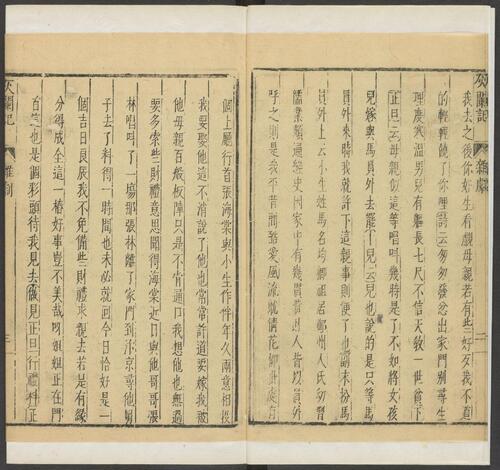 灰闌記 雜劇 二
我去之後你好生看覷母親若有些好歹我不道
的輕輕饒了你哩詩云匆匆發忿出家門別尋生
理度寒溫男兒有軀長七尺不信天敎一世貧下
正旦云母親似這等唱叫幾時是了不如將女孩
兒嫁與馬員外去罷卜兒云兒也說的是只等馬
員外來時我就許下這親事則便了也副末扮馬
員外上云小生姓馬名均卿祖居鄭州人氏幼習
儒業頗通經史因家中有幾貫資財人皆以員外
呼之則是我平昔間酷愛風流就情花柳此處有
個上廳行首張海棠與小生作伴年久兩意相投
我要娶他這不消說了他也常常許道要嫁我被
他母親百般板障只是不肯通口我想他也無過
要多索些財禮意思聞得海棠近日與他哥哥張
林唱叫了一場那張林離了家門到汴京尋他舅
子去了料得一時間也未必就回今日恰好是一
個吉日良辰我不免備些財禮求親去若是有緣
分得成全這一椿好事豈不美哉呀姐姐正在門
首這也是個彩頭待我見去做見正旦行禮科正
灰闌記 雜劇 三